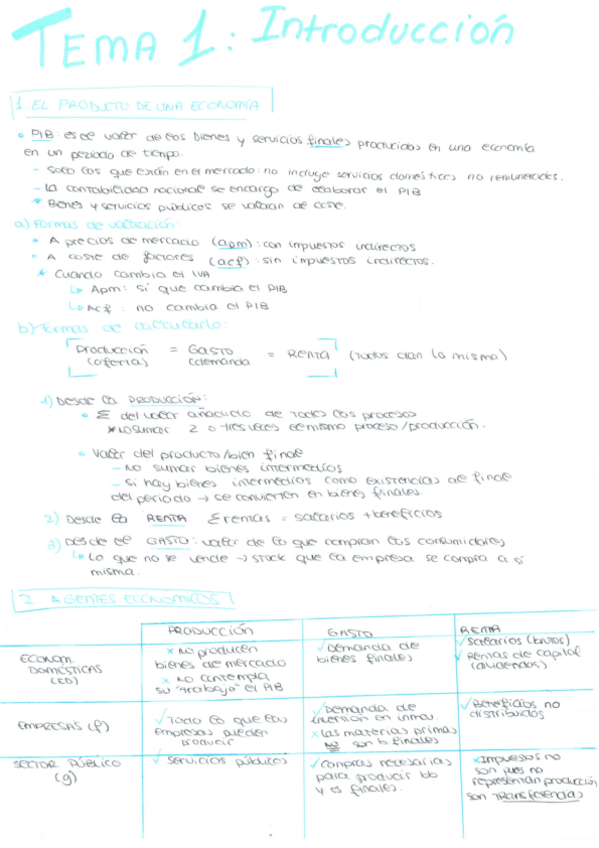 TEMA 1: Introducción
1. EL PRODUCTO DE UNA ECONOMÍA
• PIB: es el valor de los bienes y servicios finales producidos en una economía
en un periodo de tiempo.
- Solo los que están en el mercado: no incluye servicios domésticos no remunerados.
- La contabilidad nacional se encarga de elaborar el PIB
* Bienes y servicios públicos se valoran al coste.
a) Formas de valoración:
• A precios de mercado (apm): con impuestos indirectos
• A coste de factores (acf): sin impuestos indirectos.
* Cuando cambia el IVA
↳ Apm: sí que cambia el PIB
↳ Acf: no cambia el PIB
b) Formas de calcularlo:
Producción = GASTO = RENTA (Todos dan lo mismo)
(oferta) (demanda
1) Desde la PRODUCCIÓN:
• Σ del valor añadido de todos los procesos
* NO SUMAR 2 o tres veces el mismo proceso/producción.
• Valor del producto/bien final
- No sumar bienes intermedios
- Si hay bienes intermedios como existencias al final
del periodo → se convierten en bienes finales.
2) Desde la RENTA Σ rentas = salarios + beneficios
3) Desde el GASTO: valor de lo que compran los consumidores
↳ Lo que no se vende → stock que la empresa se compra a sí
misma.
2. AGENTES ECONÓMICOS
PRODUCCIÓN GASTO RENTA
ECONOM. DOMÉSTICAS (ED)
x No producen
bienes de mercado
x No contempla
su "trabajo" el PIB
✓ Demanda de
bienes finales
✓ Salarios (brutos)
✓ Rentas de capital
(dividendos)
EMPRESAS (f)
✓ Todo lo que las
empresas pueden
producir
✓ Demanda de
inversión en inmov.
x las materias primas
NO son b finales
✓ Beneficios no
distribuidos
SECTOR PÚBLICO
(g)
✓ Servicios públicos
✓ Compras necesarias
para producir bb
y ss finales.
x Impuestos no
son pues no
representan producción
son TRANSFERENCIAS